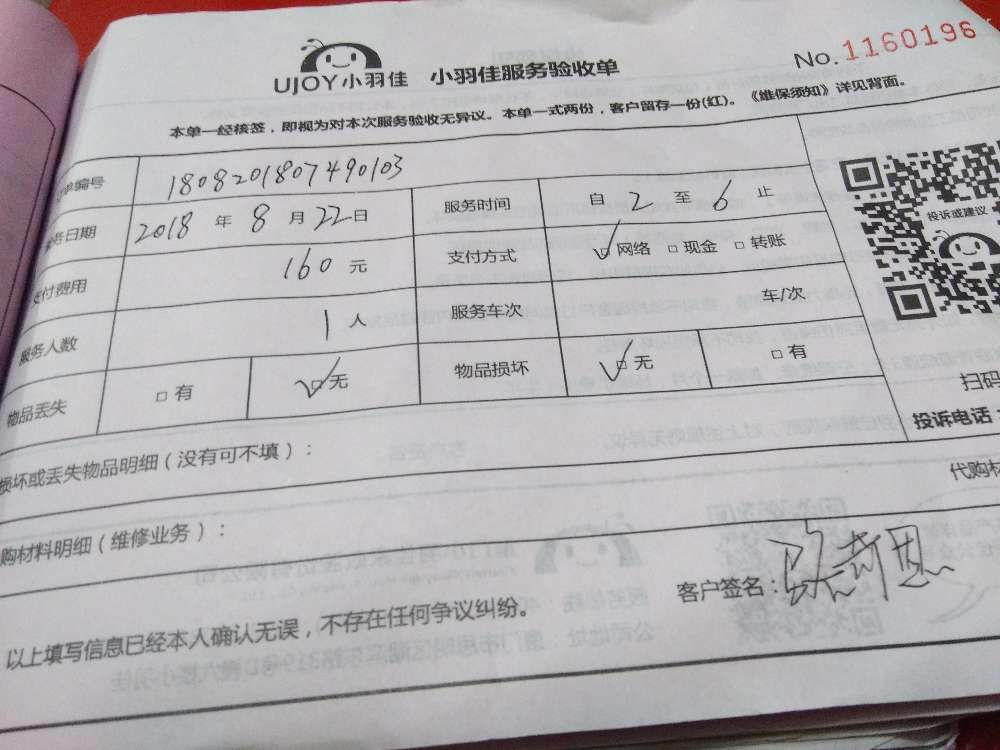 UJOY小羽佳 小羽佳服务验收单 No. 1160196
本单一经核签，即视为对本次服务验收无异议。本单一式两份，客户留存一份(红)。《维保须知》详见背面。
单编号 1808201807490103
务日期 2018 年 8 月 22 日 服务时间 自 2 至 6 止
支付费用 160 元 支付方式 ☑网络 □现金 □转账
服务人数 1 人 服务车次 车/次
物品丢失 □有 ☑无 物品损坏 ☑无 □有
投诉或建议
扫码
投诉电话：
损坏或丢失物品明细（没有可不填）：
代购材
购材料明细（维修业务）：
客户签名：
以上填写信息已经本人确认无误，不存在任何争议纠纷。